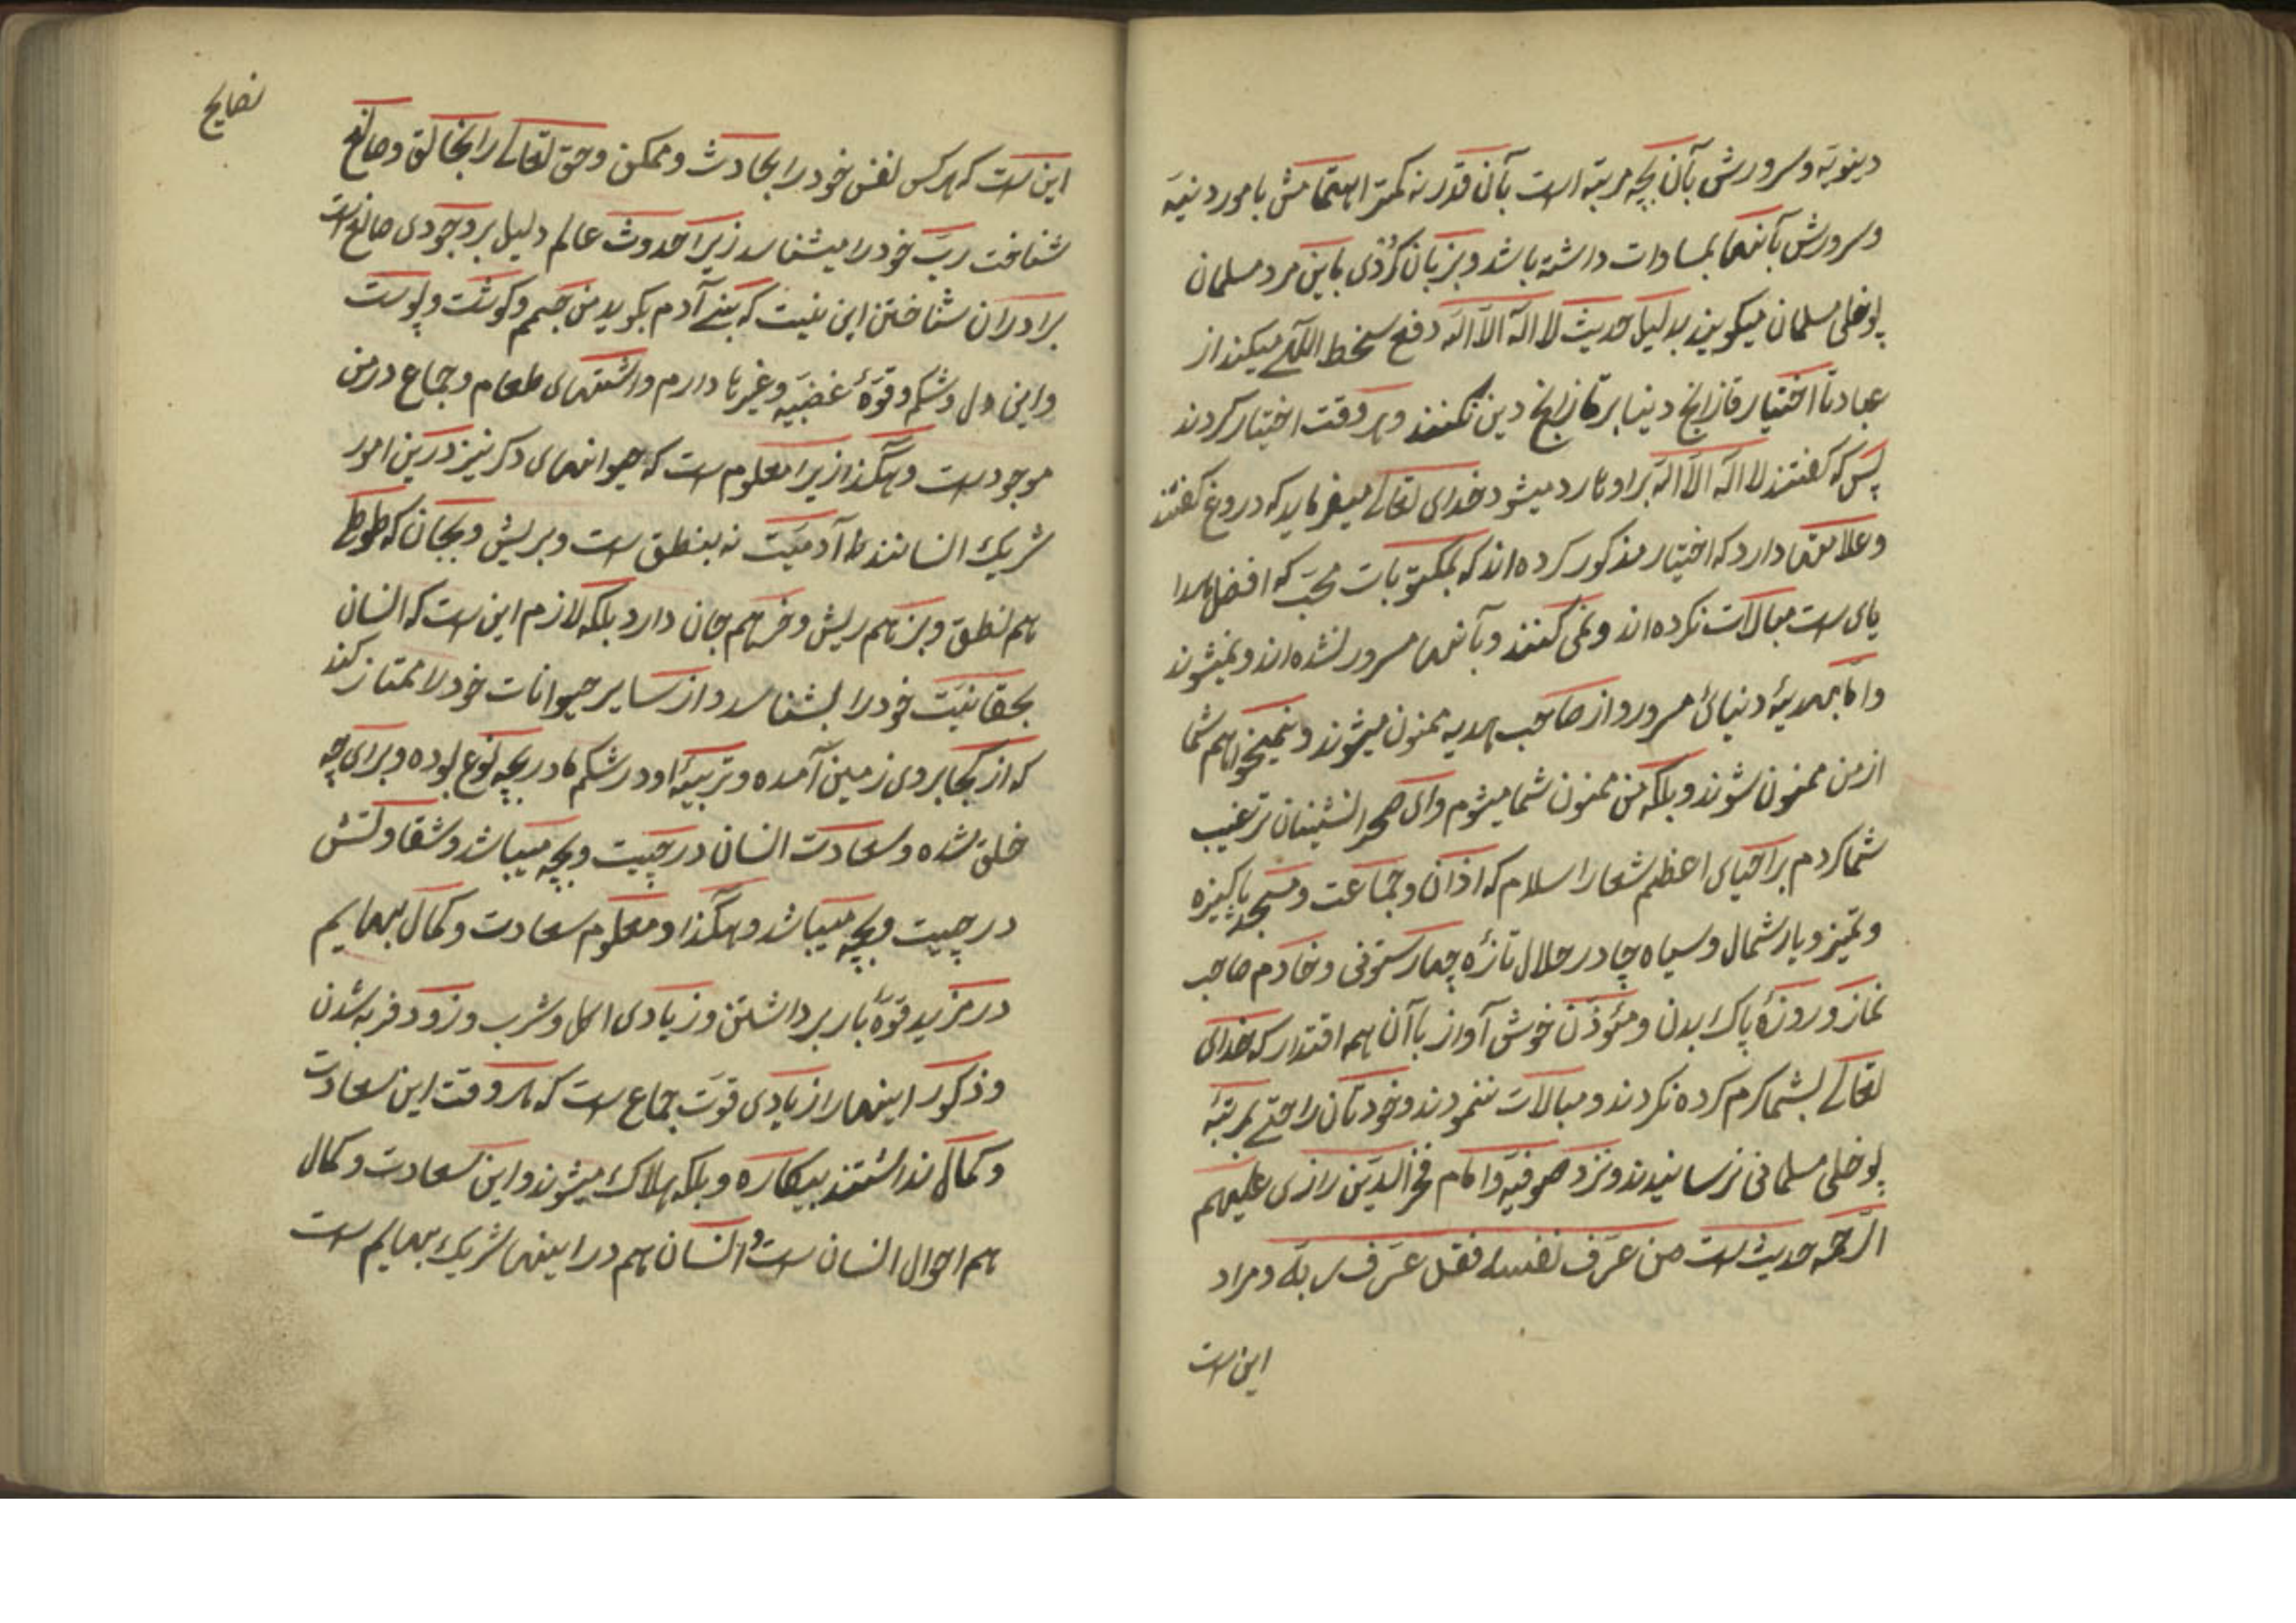 دینویّه و سرورش بآن بچه مرتبه است بآن قدر نه کمتر اهتمامش بامور دنییّه
و سرورش بآنها بمساوات داشته باشد و بزبان کردی باین مرد مسلمان
پوخلی مسلمان میگویند بدلیل حدیث لا اله الا الله دفع سخط اللّهی میکند از
عبادتا اختیار قازانج دنیا بر قازانج دین نکنند و هر وقت اختیار کردند
پس که گفتند لا اله الا الله براو نا رد میشود خدای تعالی میفرماید که دروغ گفتند
و علامتها دارد که اختیار مذکور کرده اند که بمکتوبات محبّ که افضل هدا
یای است مبالات نکرده اند و نمی کنند و بآنها مسرور نشده اند و نمیشوند
و اما بهدیهٔ دنیائی مسرور و از صاحب هدیه ممنون میشوند و نمیخواهم شما
از من ممنون شوند و بلکه من ممنون شما میشوم و ای صحرا نشینان ترغیب
شما کردم بر احیای اعظم شعار اسلام که اذان و جماعت و مسجد پاکیزه
و تمیز و یارشمال و سیاه چادر حلال تازهٔ چهار ستونی و خادم صاحب
نماز و روزهٔ پاک بدن و مئوذن خوش آواز با آن همه اقتدار که خدای
تعالی بشما کرم کرده نکردند و مبالات ننمودند و خودتان را حتی بمرتبهٔ
پوخلی مسلمانی نرسانیدند و نزد صوفیّه و امام فخر الدین رازی علیهم
الرّحمه حدیث است من عرف نفسه فقد عرف ربه و مراد
این است
نصایح
این است که هرکس نفس خود را بحادث و ممکن و حق تعالی را بخالق و صانع
شناخت ربّ خود را میشناسد زیرا حدوث عالم دلیل بر وجودی صانع است
برادران شناختن این نیست که بنی آدم بگوید من جسم و گوشت و پوست
و این دل و شکم و قوّهٔ غضبیّه و غیرها دارم و اشتهای طعام و جماع در من
موجود است و هکذا زیرا معلوم است که حیوانهای دگر نیز درین امور
شریک انسانند اما آدمیّت نه بنطق است و بریش و بجان که طوطی
هم نطق و بز هم ریش و خر هم جان دارد بلکه لازم این است که انسان
بحقانیّت خود را بشناسد و از سایر حیوانات خود را ممتاز کند
که از کجا بروی زمین آمده و تربیهٔ او در شکم مادر بچه نوع بوده و برای چه
خلق شده و سعادت انسان در چیست و بچه میباشد و شقاوتش
در چیست و بچه میباشد و هکذا و معلوم سعادت و کمال بهایم
در مزید قوّهٔ بار برداشتن و زیادی اکل و شرب و زود فربه شدن
و ذکور اینها را زیادی قوت جماع است که هر وقت این سعادت
و کمال نداشتند بیکاره و بلکه هلاک میشوند و این سعادت و کمال
هم احوال انسان است و انسان هم در اینها شریک بهایم است